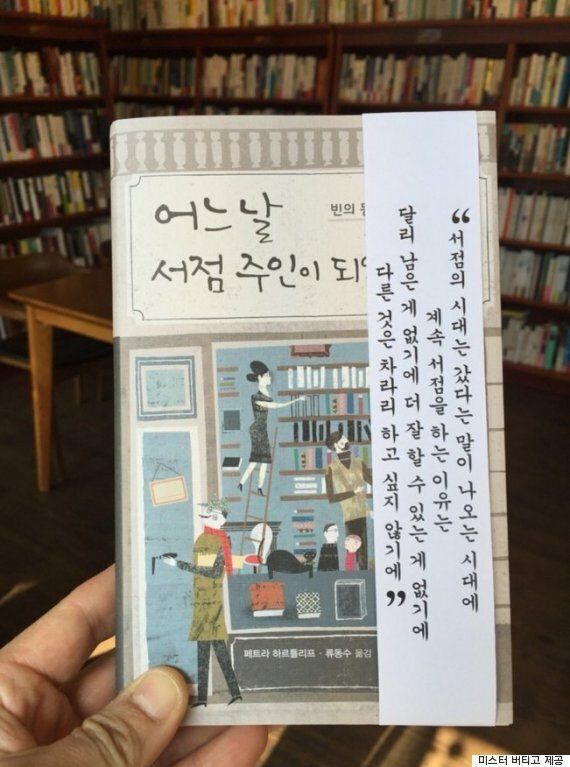 어느 날
빈의
서점 주인이
“서점의 시대는 갔다는 말이 나오는 시대에
계속 서점을 하는 이유는
달리 남은 게 없기에 더 잘 할 수 있는 게 없기에
다른 것은 차라리 하고 싶지 않기에”
페트라 하르틀리프 · 류동수 옮김
미스터 버티고 제공